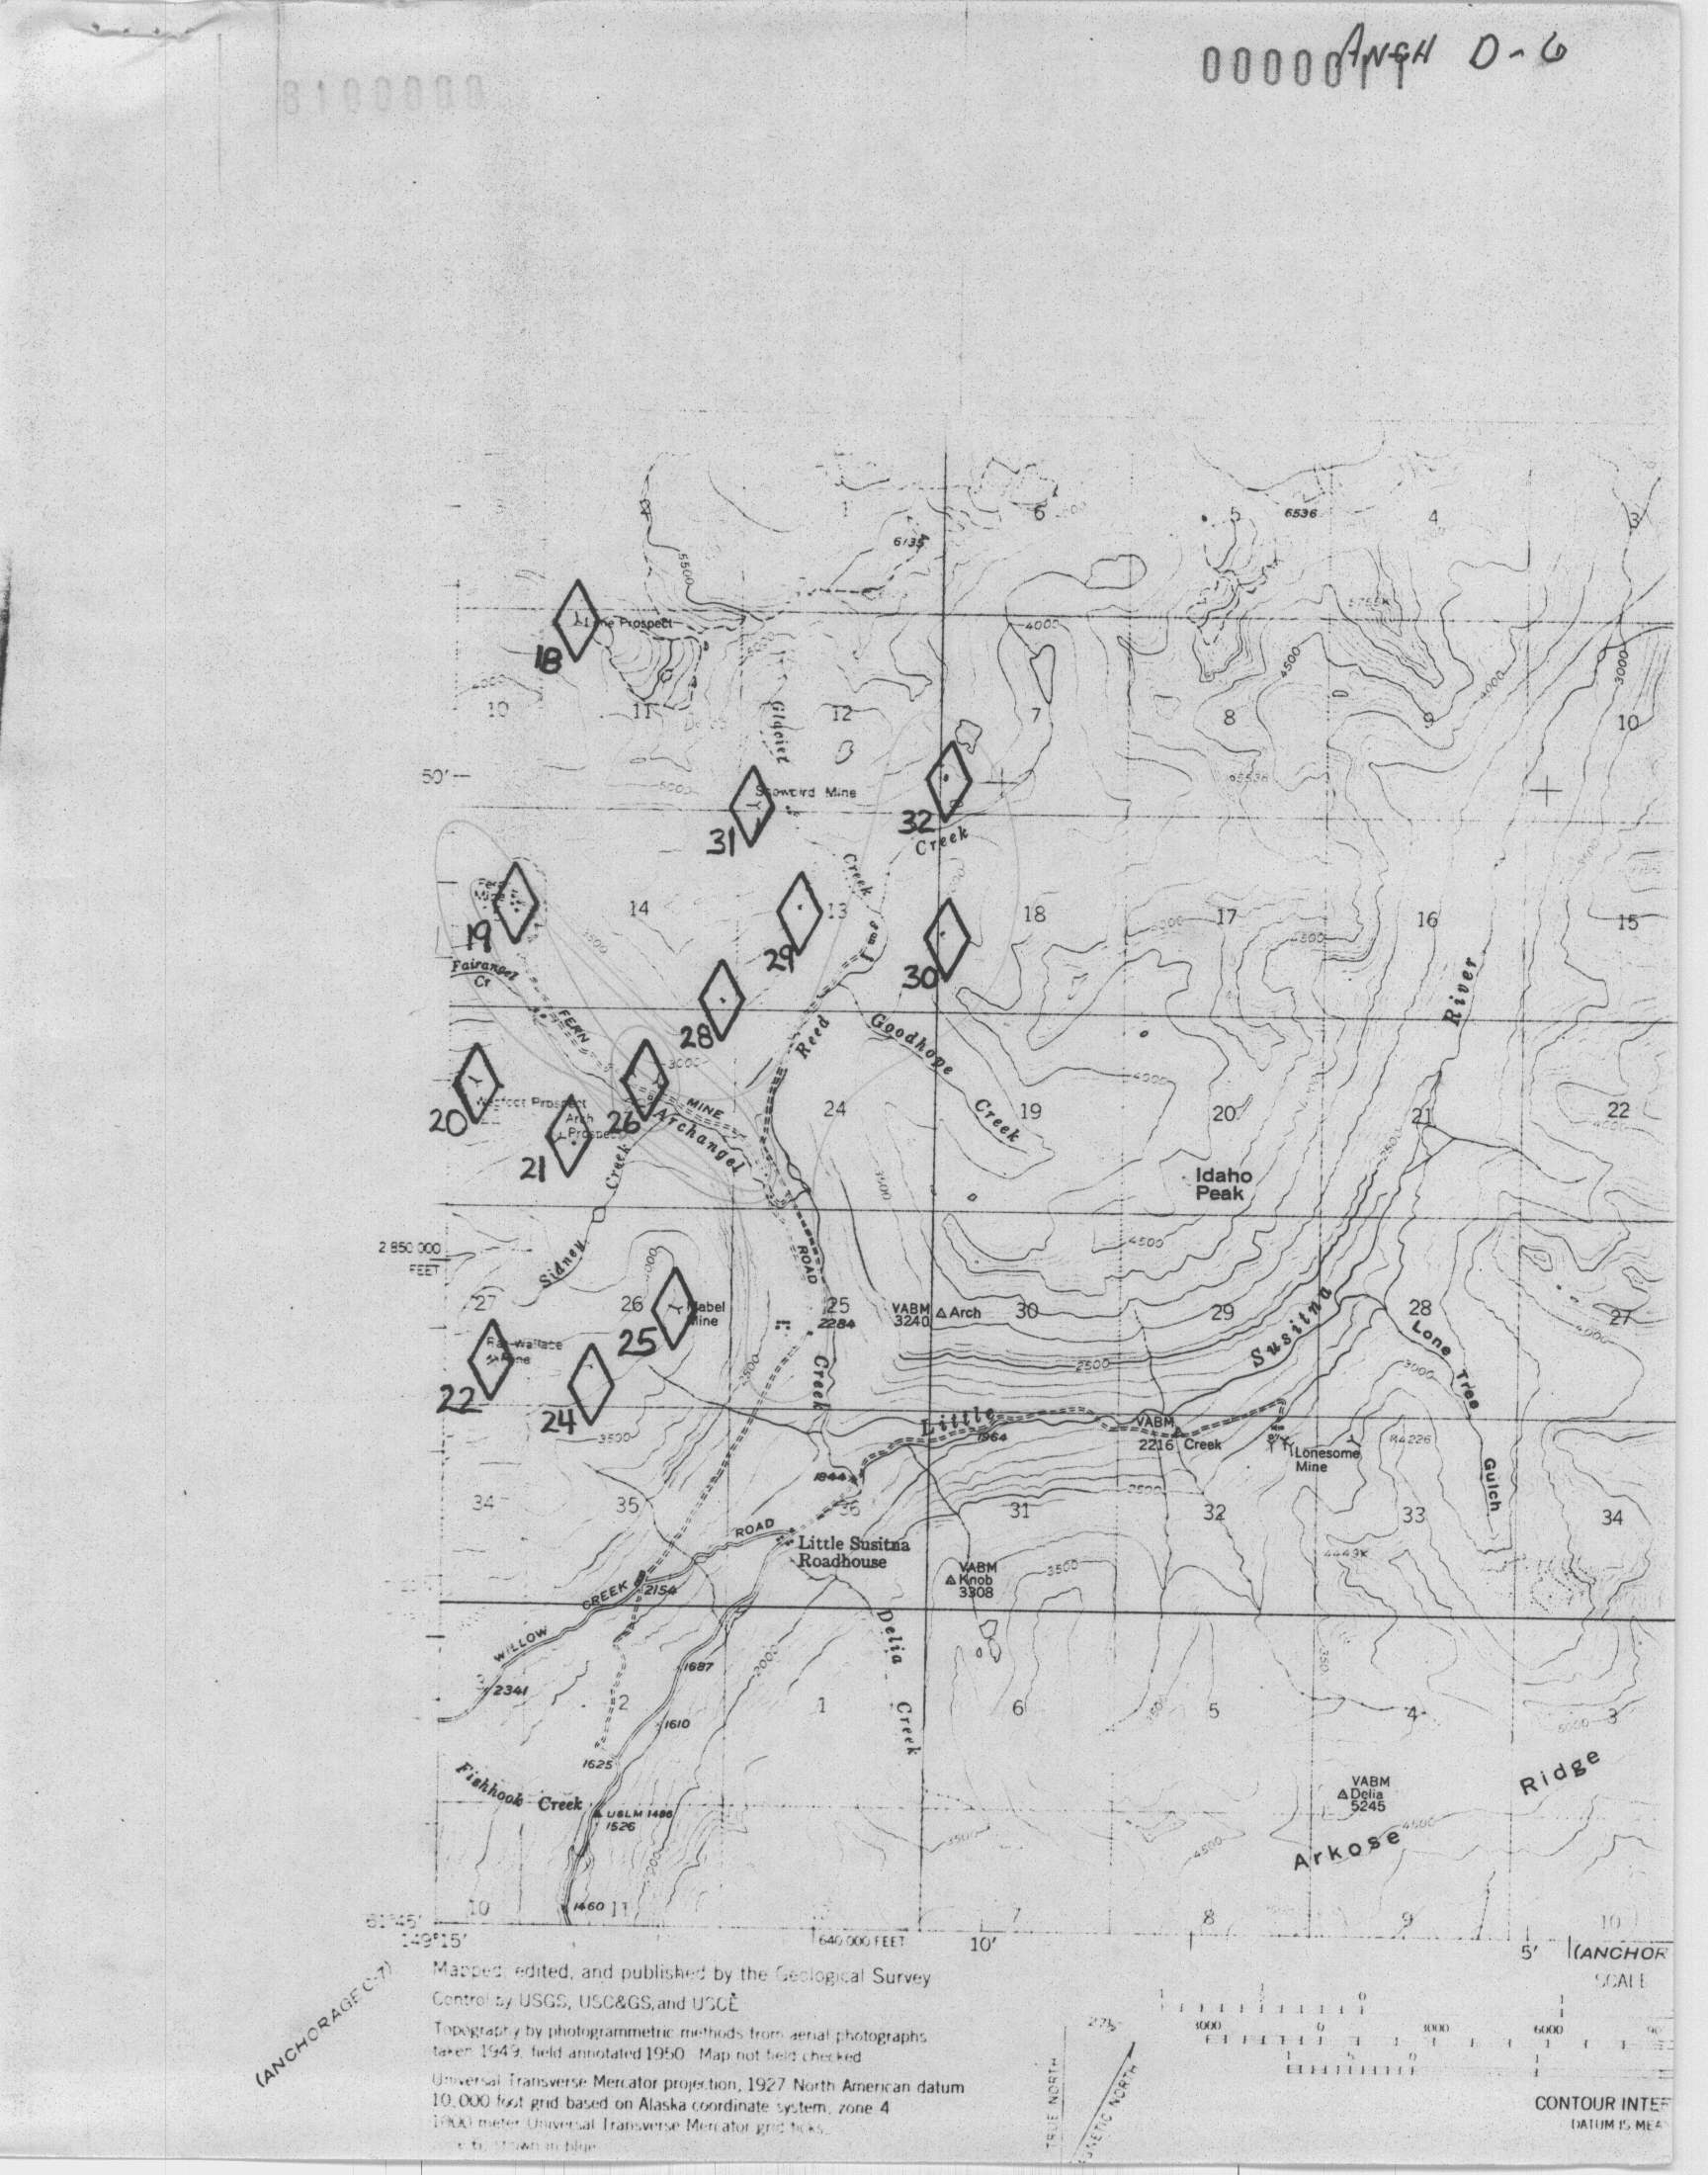 ANCH D-6
6
5
6536
4
3
6135
5500
Prospect
18
4000
4500
4000
3000
10
11
12
7
8
9
10
Glacier
50'
Snowbird Mine
31
32
Creek
Creek
14
13
18
17
16
15
19
29
30
Fairangel
Cr
River
28
FERN
Reed
Goodhope
3000
4000
20
Prospect
Arch
Prospect
26
MINE
Archangel
24
Creek
19
20
21
22
21
Creek
2500
3500
Idaho
Peak
2 850 000
FEET
4500
Sidney
ROAD
27
26
Mabel
Mine
25
2284
VABM
3240
Arch
30
29
28
27
25
Susitna
Lone
Tree
Gulch
Wallace
Mine
22
24
2500
Creek
2500
3000
Little
1964
VABM
2216
Creek
3500
Lonesome
Mine
1844
2500
34
35
36
31
32
33
34
ROAD
Little Susitna
Roadhouse
VABM
Knob
3308
3500
CREEK
2154
WILLOW
Delia
Creek
2341
1687
2000
2
1
6
5
4
3
1610
1625
Fishhook Creek
USLM 1486
1526
VABM
Delia
5245
Ridge
Arkose
3500
4500
4500
10
11
1460
7
8
9
10
61°45'
149°15'
640 000 FEET
10'
5'
(ANCHOR
SCALE
(ANCHORAGE C-7)
Mapped, edited, and published by the Geological Survey
Control by USGS, USC&GS, and USCE
Topography by photogrammetric methods from aerial photographs
taken 1949, field annotated 1950. Map not field checked
Universal Transverse Mercator projection, 1927 North American datum
10,000 foot grid based on Alaska coordinate system, zone 4
1000 meter Universal Transverse Mercator grid ticks,
shown in blue
TRUE NORTH
MAGNETIC NORTH
3000
0
3000
6000
CONTOUR INTE
DATUM IS MEA